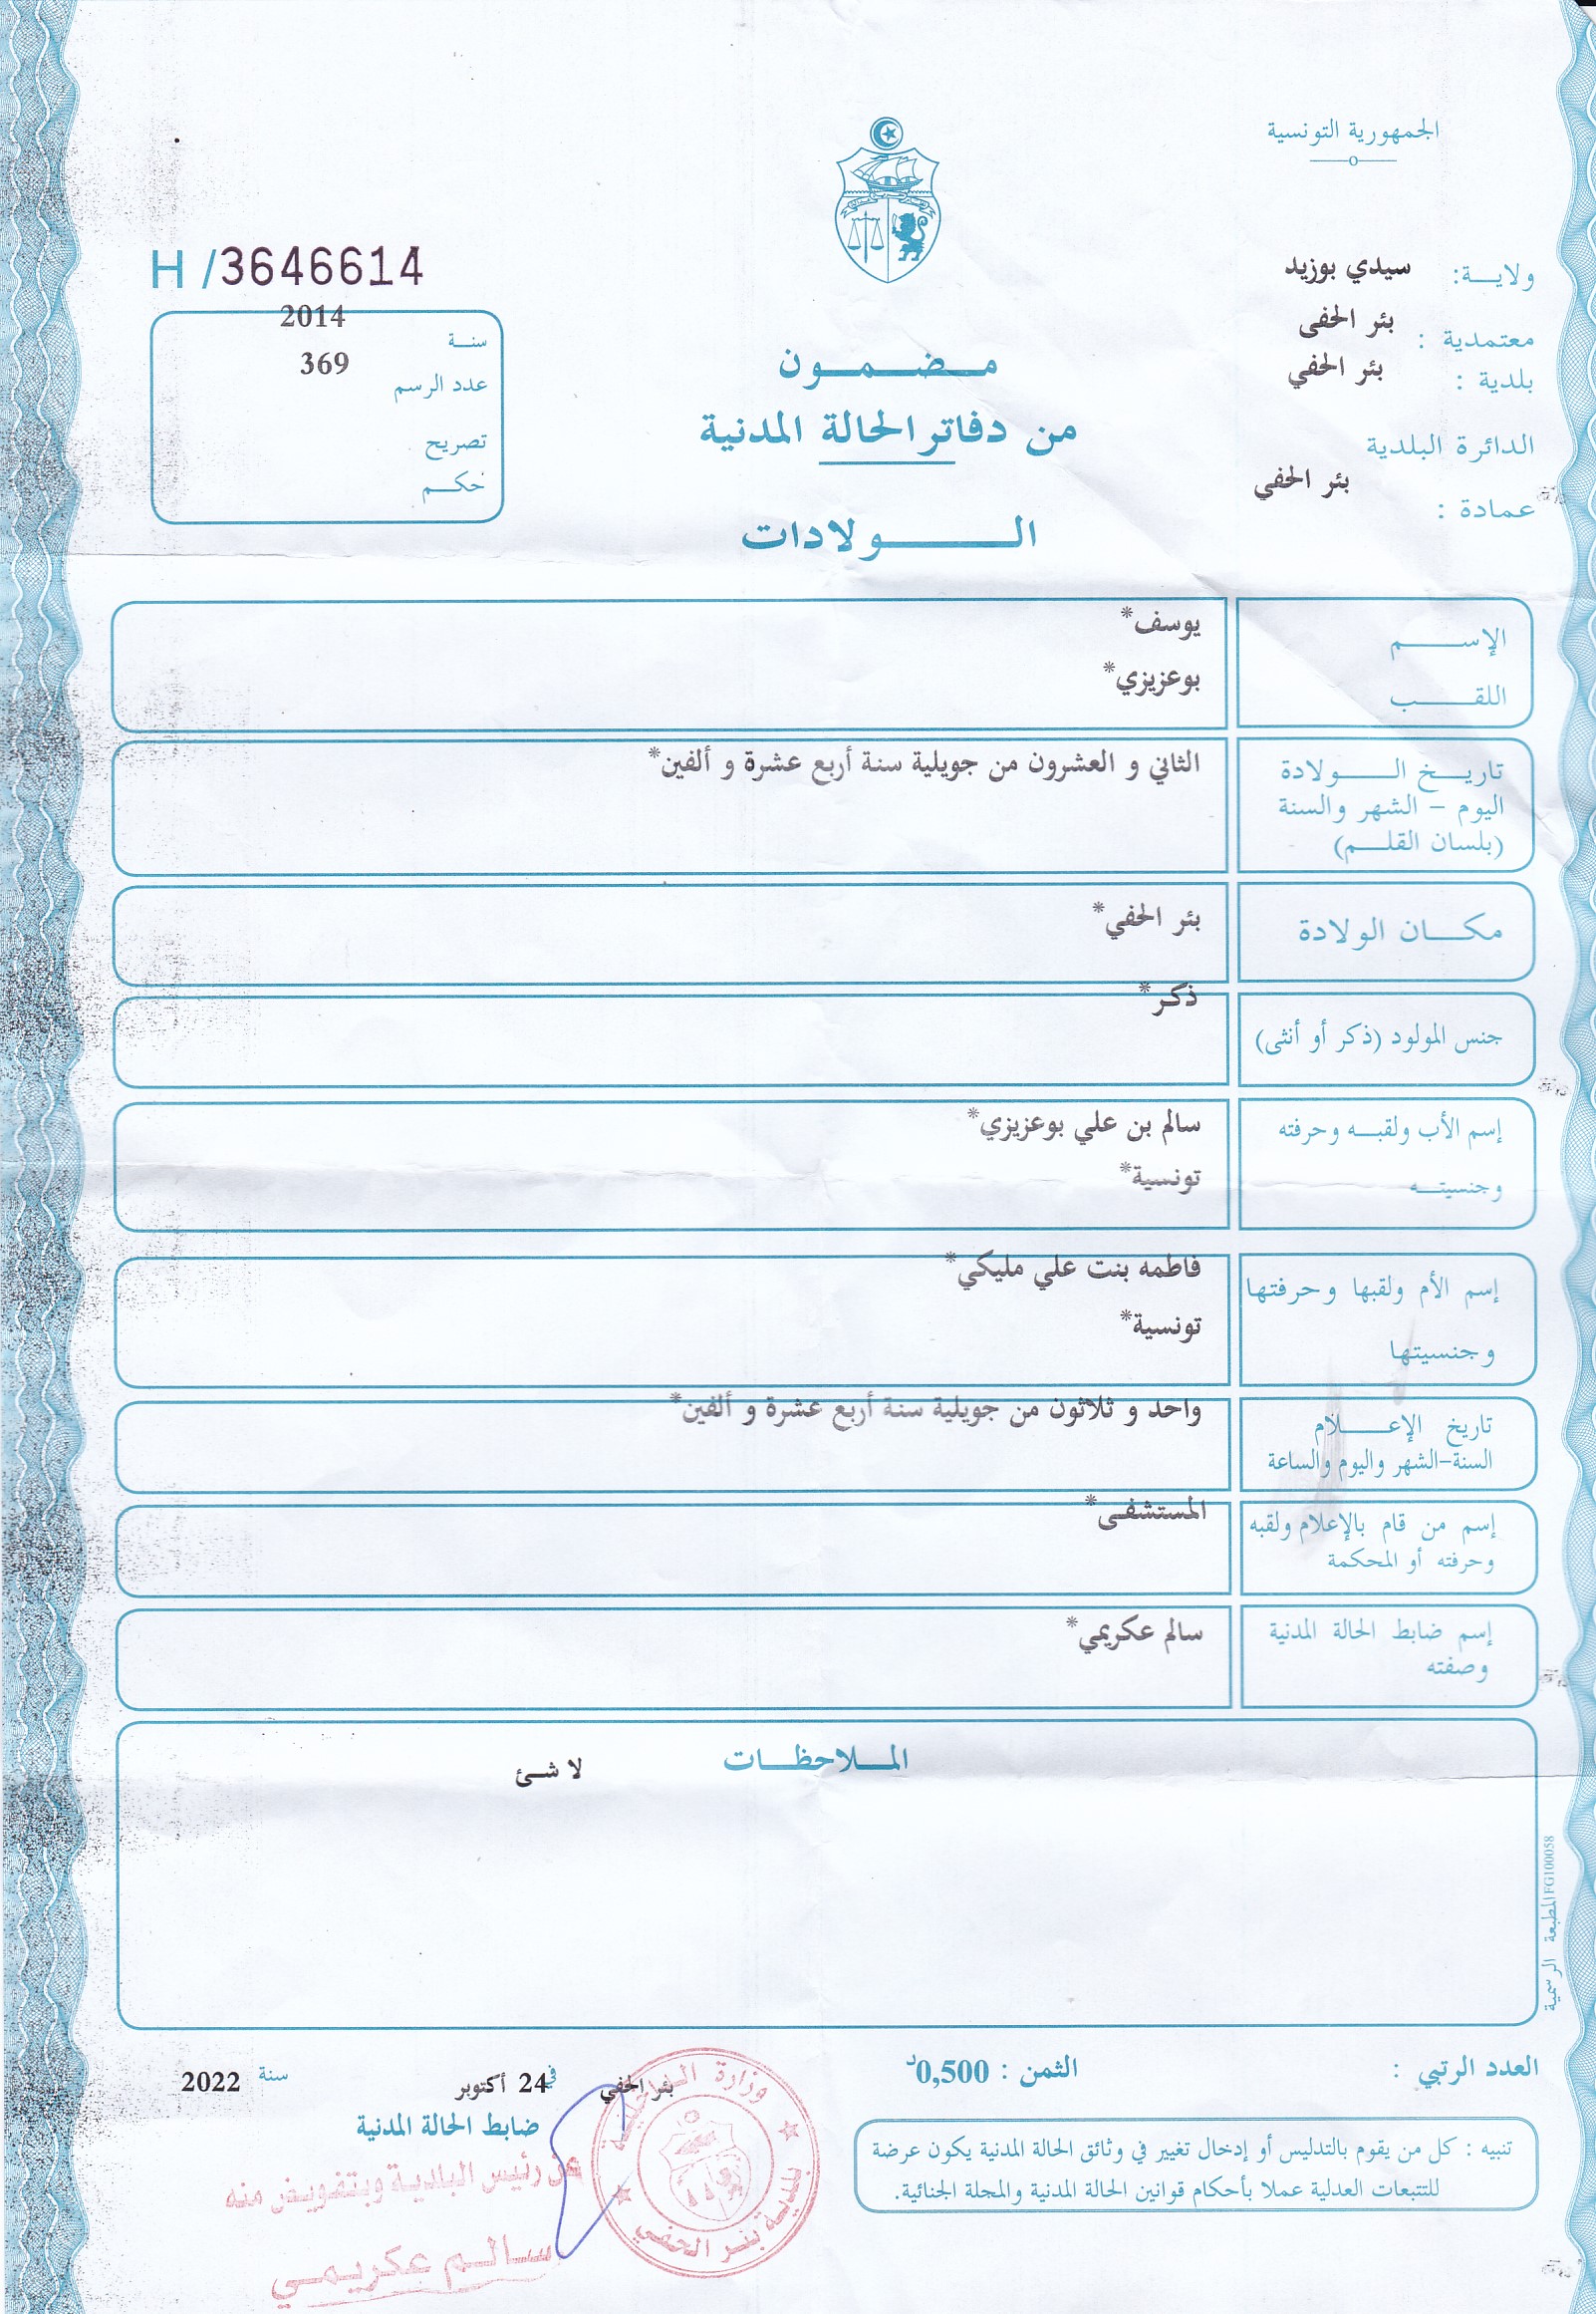 الجمهورية التونسية
ولاية: سيدي بوزيد
معتمدية : بئر الحفى
بلدية : بئر الحفي
الدائرة البلدية
عمادة : بئر الحفي
H /3646614
سنة 2014
عدد الرسم 369
تصريح
حكم
مضمون
من دفاتر الحالة المدنية
الولادات
الإسم يوسف*
اللقب بوعزيزي*
تاريخ الولادة الثاني و العشرون من جويلية سنة أربع عشرة و ألفين*
اليوم - الشهر والسنة
(بلسان القلم)
مكان الولادة بئر الحفي*
جنس المولود (ذكر أو أنثى) ذكر*
إسم الأب ولقبه وحرفته سالم بن علي بوعزيزي*
وجنسيته تونسية*
إسم الأم ولقبها وحرفتها فاطمه بنت علي مليكي*
وجنسيتها تونسية*
تاريخ الإعلام واحد و ثلاثون من جويلية سنة أربع عشرة و ألفين*
السنة-الشهر واليوم والساعة
إسم من قام بالإعلام ولقبه المستشفى*
وحرفته أو المحكمة
إسم ضابط الحالة المدنية سالم عكريمي*
وصفته
الملاحظات
لا شئ
المطبعة الرسمية FG100058
العدد الرتبي :
الثمن : 0,500د
تنبيه : كل من يقوم بالتدليس أو إدخال تغيير في وثائق الحالة المدنية يكون عرضة
للتتبعات العدلية عملا بأحكام قوانين الحالة المدنية والمجلة الجنائية.
بئر الحفي في 24 أكتوبر سنة 2022
ضابط الحالة المدنية
عن رئيس البلدية وبتفويض منه
سالم عكريمي
وزارة الداخلية
بلدية بئر الحفي